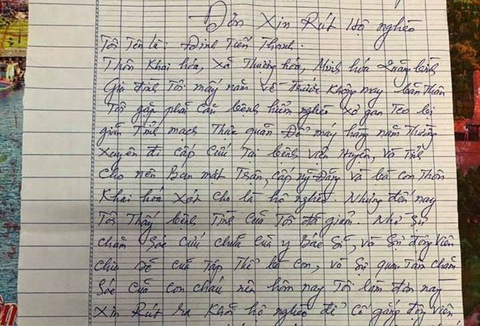 Đơn Xin Rút Hộ nghèo
Tôi Tên là: Đinh Tiến Thịnh.
Thôn Khai hóa, Xã Thượng hóa, Minh hóa Quảng bình
Gia đình Tôi mấy năm về Trước không may bản Thân
Tôi gặp phải căn bệnh hiểm nghèo xơ gan Teo lại
giãn Tĩnh mạch Thực quản
Xuyên đi cấp cứu Tại bệnh viện Huyện, và Tỉnh
Cho nên Ban mặt Trận, cấp uỷ Đảng và bà con Thôn
Khai hóa Xét cho là hộ nghèo. Nhưng đến nay
Tôi Thấy bệnh Tình của Tôi đã giảm. Nhờ Sự
chăm Sóc cứu chữa của y Bác Sĩ, và Sự động viên
chia Sẻ của Tập Thể bà con, và Sự quan Tâm chăm
Sóc của con cháu nên hôm nay Tôi làm đơn này
Xin Rút ra khỏi hộ nghèo để cố gắng động viên